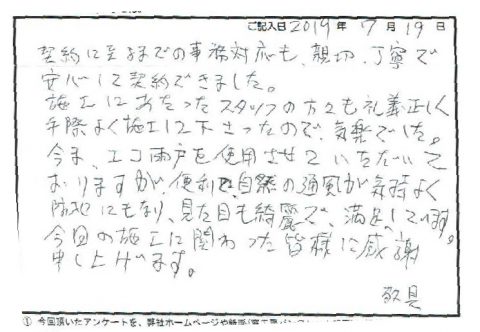 ご記入日 2019 年 7 月 19 日
契約に至るまでの事務対応も、親切、丁寧で
安心して契約できました。
施工にあたったスタッフの方々も礼義正しく
手際よく施工して下さったので、気楽でした。
今ま、エコ雨戸を使用させていただいて
おりますが、便利で自然の通風が気持よく
防犯にもなり、見た目も綺麗で、満足しています。
今回の施工に関わった皆様に感謝
申し上げます。
敬具
① 今回頂いたアンケートを、弊社ホームページや